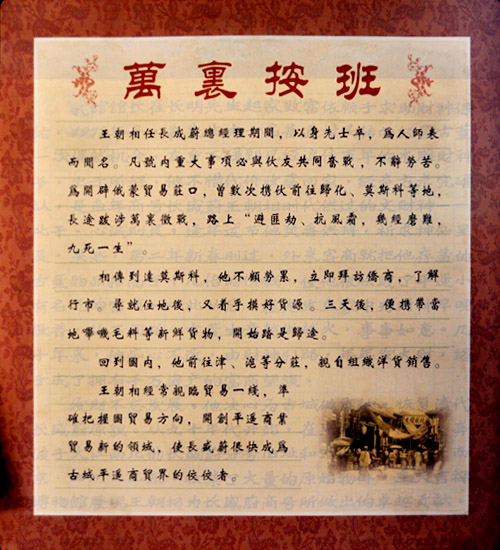 萬裏按班
王朝相任長盛蔚總經理期間，以身先士卒，爲人師表
而聞名。凡號内重大事項必與伙友共同奮戰，不辭勞苦。
爲開辟俄蒙貿易莊口，曾數次携伙前往歸化、莫斯科等地，
長途跋涉萬裏徵戰，路上“避匪劫、抗風霜，幾經磨難，
九死一生”。
相傳到達莫斯科，他不顧勞累，立即拜訪僑商，了解
行市。尋就住地後，又着手摸好貨源。三天後，便携帶當
地嗶嘰毛料等新鮮貨物，開始踏是歸途。
回到國内，他前往津、滬等分莊，親自組織洋貨銷售。
王朝相經常親臨貿易一綫，準
確把握國貿易方向，開創平遥商業
貿易新的領域，使長盛蔚很快成爲
古城平遥商貿界的佼佼者。